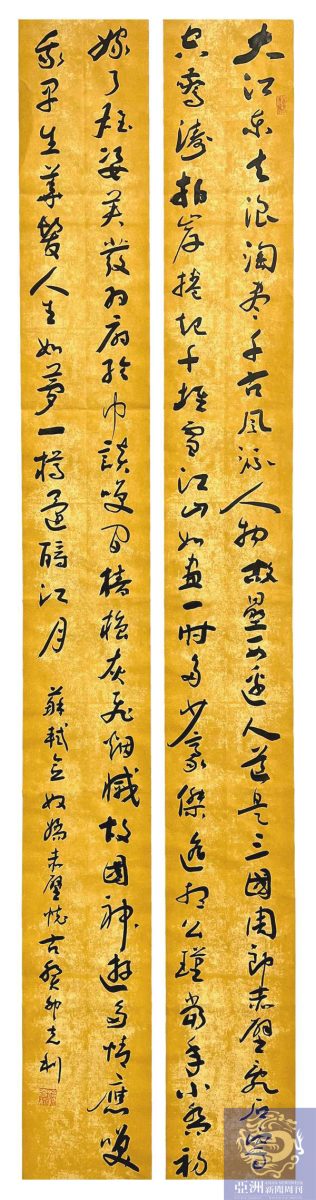 大江東去浪淘盡千古風流人物故壘西邊人道是三國周郎赤壁亂石穿
空驚濤拍岸捲起千堆雪江山如畫一時多少豪傑遙想公瑾當年小喬初
嫁了雄姿英發羽扇綸巾談笑間檣櫓灰飛烟滅故國神遊多情應笑
我早生華髮人生如夢一樽還酹江月 蘇軾念奴嬌赤壁懷古癸卯克利
亞洲新聞周刊